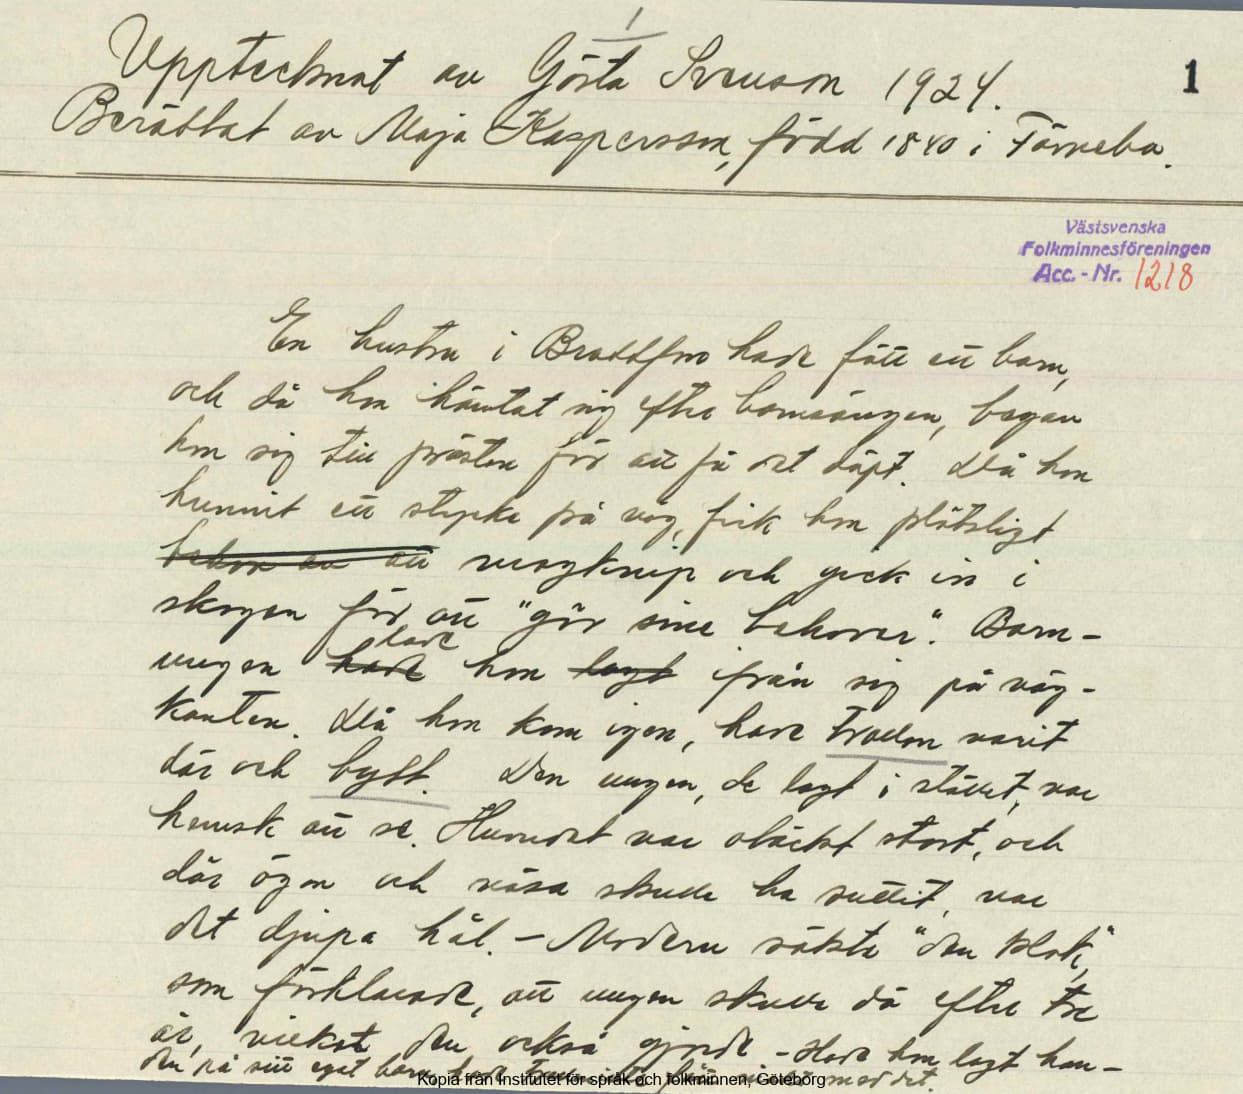 1
Upptecknat av Gösta Svenson 1924.
1
Berättat av Maja Kaspersson, född 1840 i Färnebo.
Västsvenska
Folkminnesföreningen
Acc. - Nr. 1218
En hustru i Brattfors hade fått ett barn,
och då hon hämtat sig efter barnsängen, begav
hon sig till prästen för att få det döpt. Då hon
hunnit ett stycke på väg, fick hon plötsligt
behov av att magknip och gick in i
skogen för att "gör sine behover". Barn-
hade
ungen hade hon lagt ifrån sig på väg-
kanten. Då hon kom igen, hade trollen varit
där och bytt. Den ungen, de lagt i stället, var
hemsk att se. Huvudet var obäckt stort, och
där ögon och näsa skulle ha suttit, var
det djupa hål. - Modern sökte "den klok",
som förklarade, att ungen skulle dö efter tre
år, vilket den också gjorde - Hade hon lagt han-
den på sitt eget barn, hade med det.
Kopia från Institutet för språk och folkminnen, Göteborg